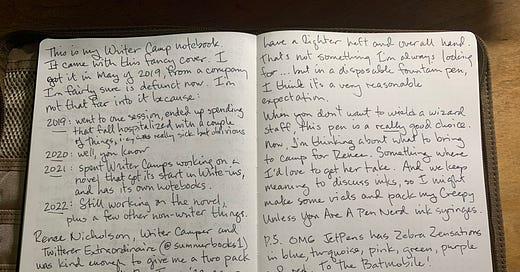 This is my Writer Camp notebook.
It came with this fancy cover. I
got it in May of 2019, from a company
I'm fairly sure is defunct now. I'm
not that far into it because:
2019: went to one session, ended up spending
that fall hospitalized with a couple
of things; really sick but oblivious
2020: well, you know
2021: spent Writer Camps working on a
novel that got its start in Write-ins,
and has its own notebooks.
2022: Still working on the novel,
plus a few other non-writer things.
Renee Nicholson, Writer Camper and
Twitterer Extraordinaire (@summerbooks1)
was kind enough to give me a two pack
have a lighter heft and overall hand.
That's not something I'm always looking
for... but in a disposable fountain pen,
I think it's a very reasonable
expectation.
When you don't want to wield a wizard
staff this pen is a really good choice.
Now, I'm thinking about what to bring
to camp for Renee. Something where
I'd love to get her take. And we keep
meaning to discuss inks, so I might
make some vials and pack my Creepy
Unless You Are A Pen Nerd ink syringes.
P.S. OMG JetPens has Zebra Zensations
in blue, turquoise, pink, green, purple
To The Batmobile!